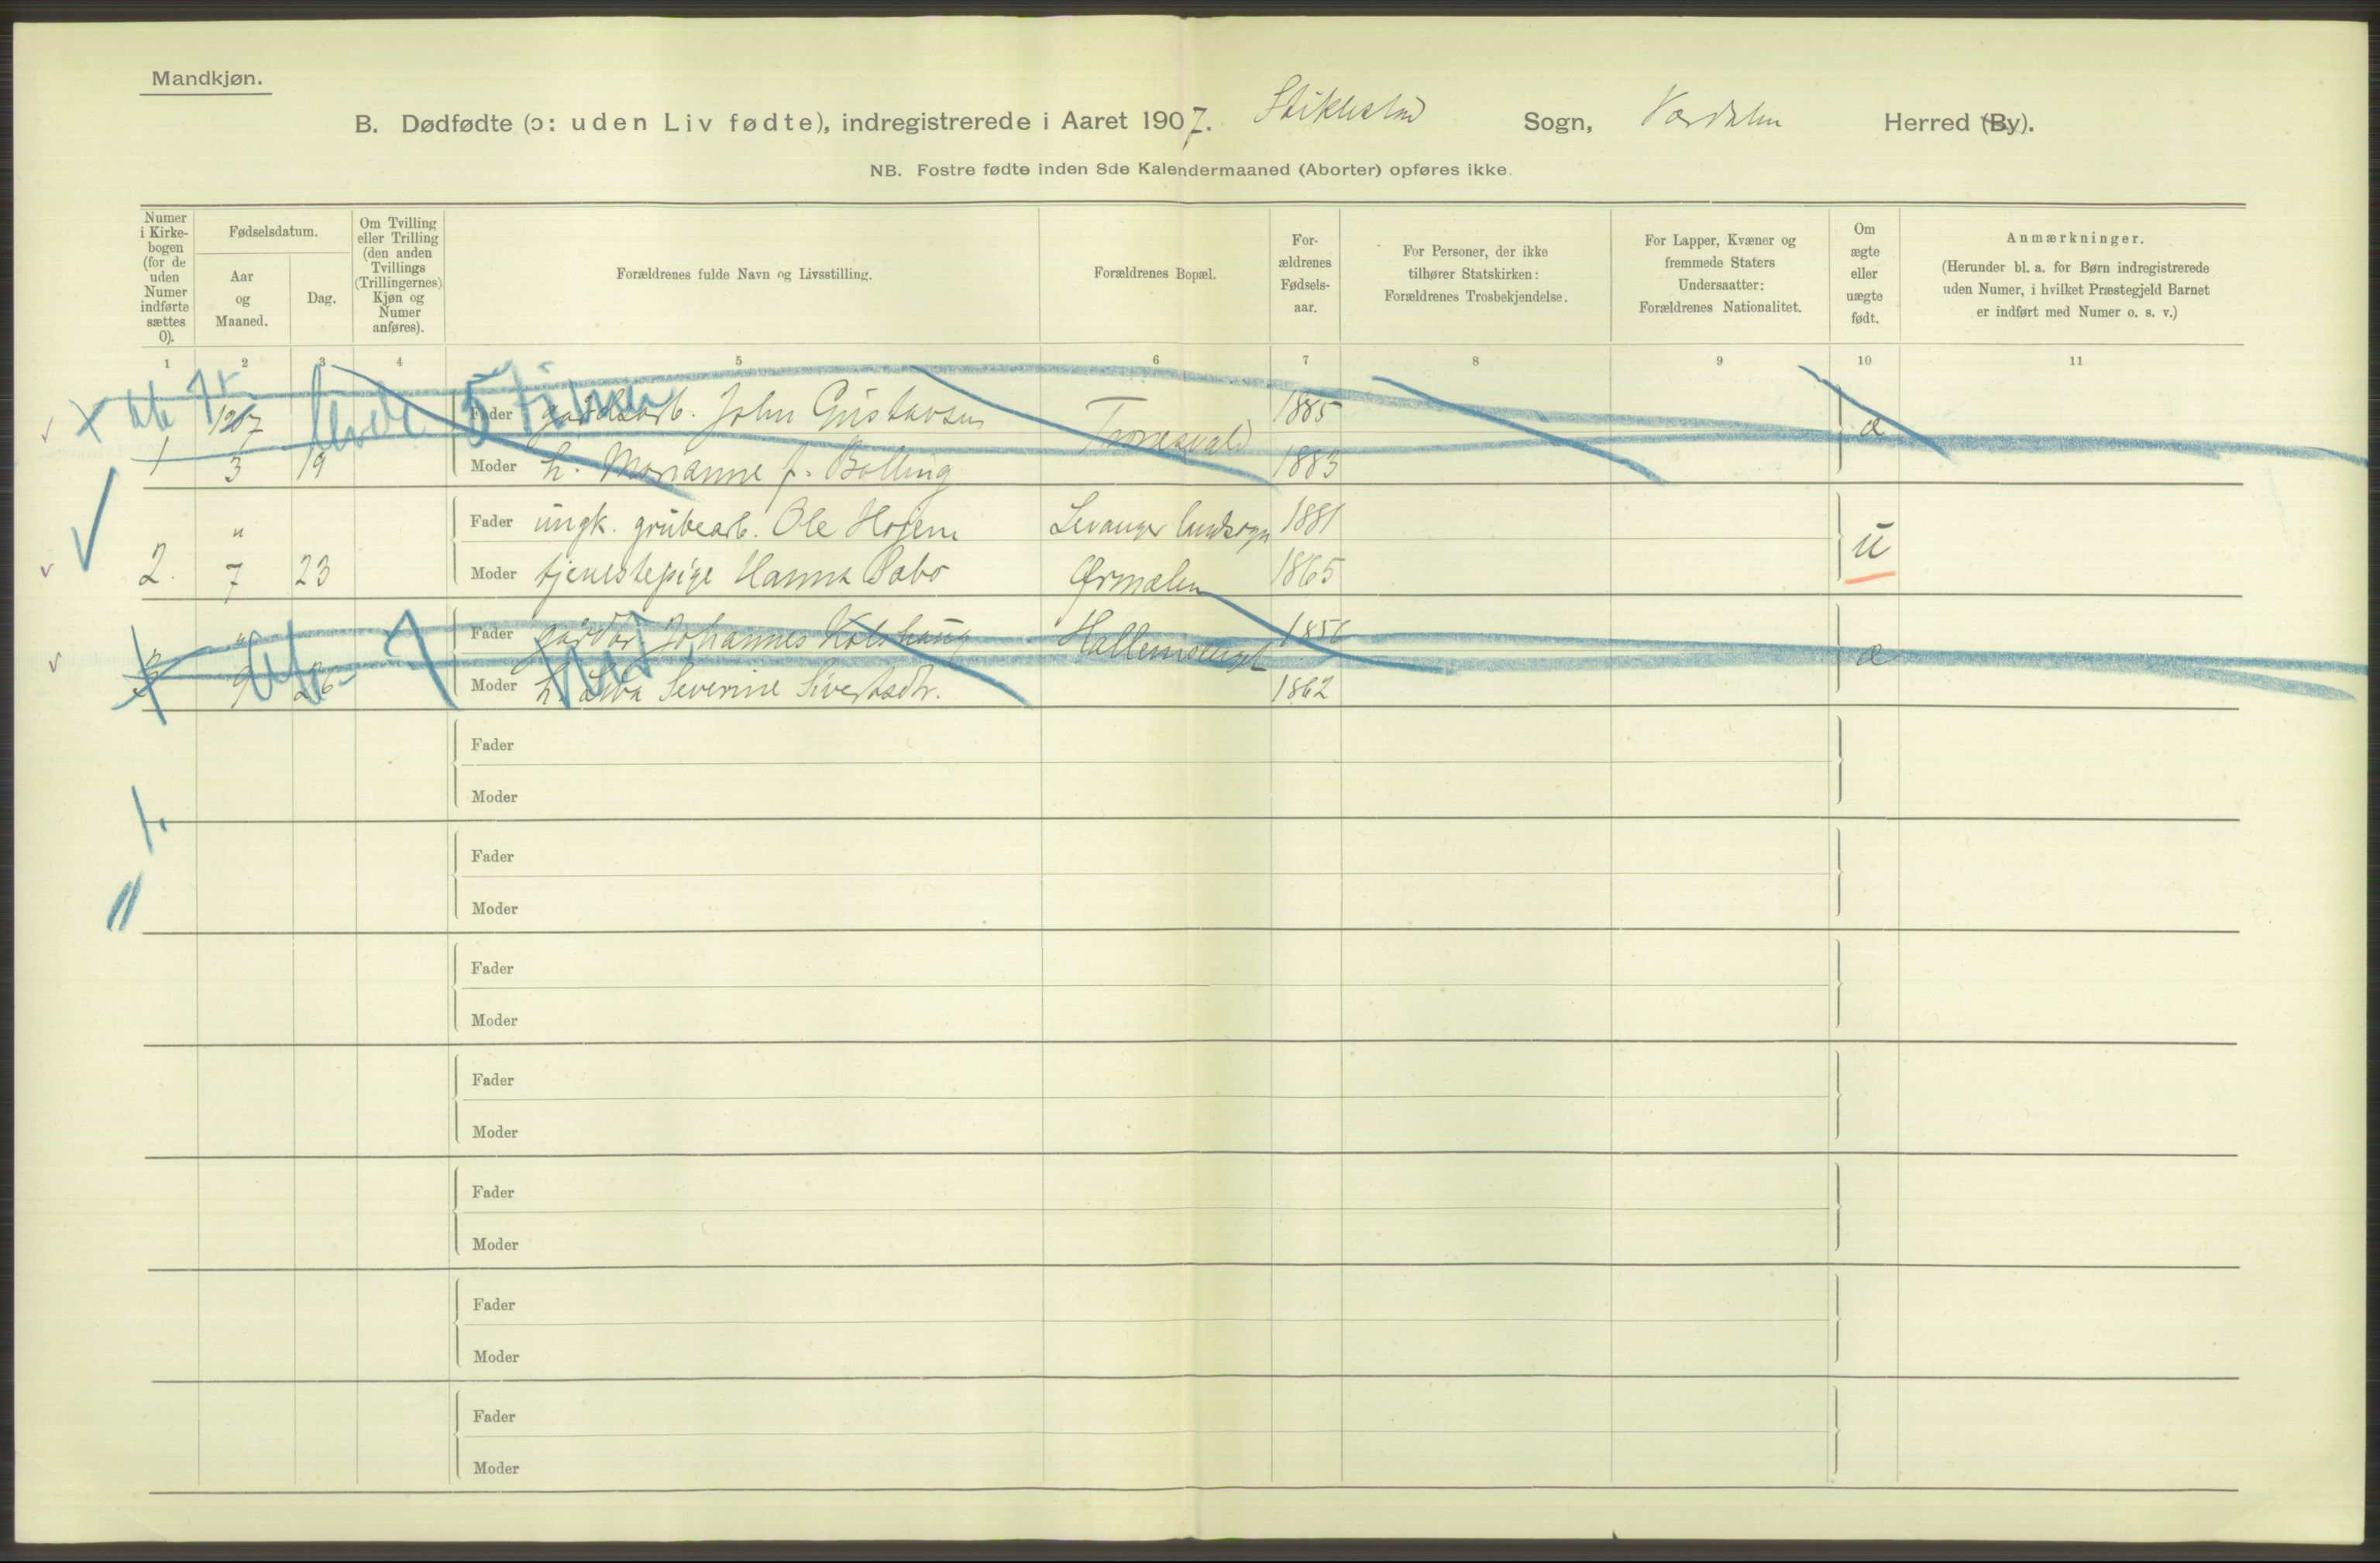 Mandkjøn.
B. Dødfødte (ɔ: uden Liv fødte), indregistrerede i Aaret 1907. Stiklestad Sogn, Værdalen Herred (By).
NB. Fostre fødte inden 8de Kalendermaaned (Aborter) opføres ikke.
Numer i Kirke-bogen (for de uden Numer indførte sættes 0).
Fødselsdatum.
Aar og Maaned.
Dag.
Om Tvilling eller Trilling (den anden Tvillings (Trillingernes) Kjøn og Numer anføres).
Forældrenes fulde Navn og Livsstilling.
Forældrenes Bopæl.
For-ældrenes Fødsels-aar.
For Personer, der ikke tilhører Statskirken: Forældrenes Trosbekjendelse.
For Lapper, Kvæner og fremmede Staters Undersaatter: Forældrenes Nationalitet.
Om ægte eller uægte født.
Anmærkninger.
(Herunder bl. a. for Børn indregistrerede uden Numer, i hvilket Præstegjeld Barnet er indført med Numer o. s. v.)
1 2 3 4 5 6 7 8 9 10 11
levede 5 timer
1907 Fader gårdsarb. John Gustavsen 1885 æ
1 3 19 Moder h. Marianne f. Bolling 1883
" Fader ungk. grubearb. Ole Hojem Levanger landsogn 1881 u
2. 7 23 Moder tjenestepige Hanna Sabo Ørmælen 1865
" Fader Johannes Kolshaug 1856 æ
3 9 26 Moder h. Severine Sivertsdtr. 1862
Fader
Moder
Fader
Moder
Fader
Moder
Fader
Moder
Fader
Moder
Fader
Moder
Fader
Moder